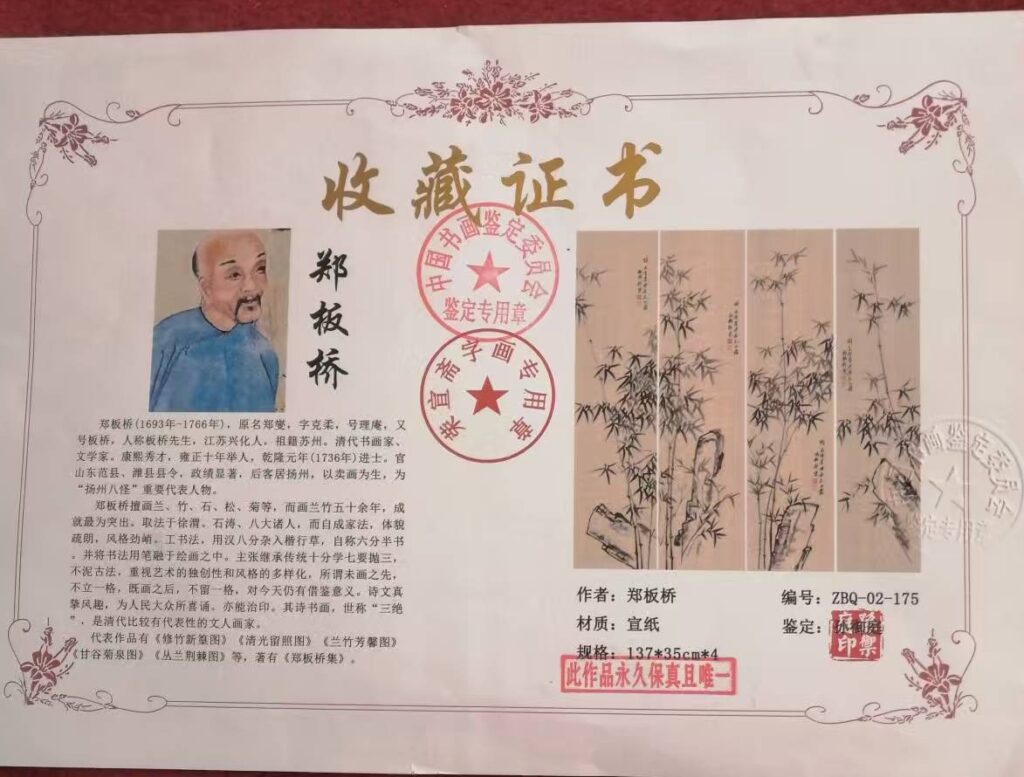 收藏证书
郑板桥
中国书画鉴定委员会
鉴定专用章
荣宣斋字画专用章
郑板桥(1693年-1766年)，原名郑燮，字克柔，号理庵，又
号板桥，人称板桥先生，江苏兴化人，祖籍苏州。清代书画家、
文学家。康熙秀才，雍正十年举人，乾隆元年(1736年)进士。官
山东范县、潍县县令，政绩显著，后客居扬州，以卖画为生，为
“扬州八怪”重要代表人物。
郑板桥擅画兰、竹、石、松、菊等，而画兰竹五十余年，成
就最为突出。取法于徐渭、石涛、八大诸人，而自成家法，体貌
疏朗，风格劲峭。工书法，用汉八分杂入楷行草，自称六分半书
。并将书法用笔融于绘画之中。主张继承传统十分学七要抛三，
不泥古法，重视艺术的独创性和风格的多样化，所谓未画之先，
不立一格，既画之后，不留一格，对今天仍有借鉴意义。诗文真
挚风趣，为人民大众所喜诵。亦能治印。其诗书画，世称“三绝
”，是清代比较有代表性的文人画家。
代表作品有《修竹新篁图》《清光留照图》《兰竹芳馨图》
《甘谷菊泉图》《丛兰荆棘图》等，著有《郑板桥集》。
作者：郑板桥
材质：宣纸
规格：137*35cm*4
此作品永久保真且唯一
编号：ZBQ-02-175
鉴定：孙御庭
鉴定委员会
鉴定专用章